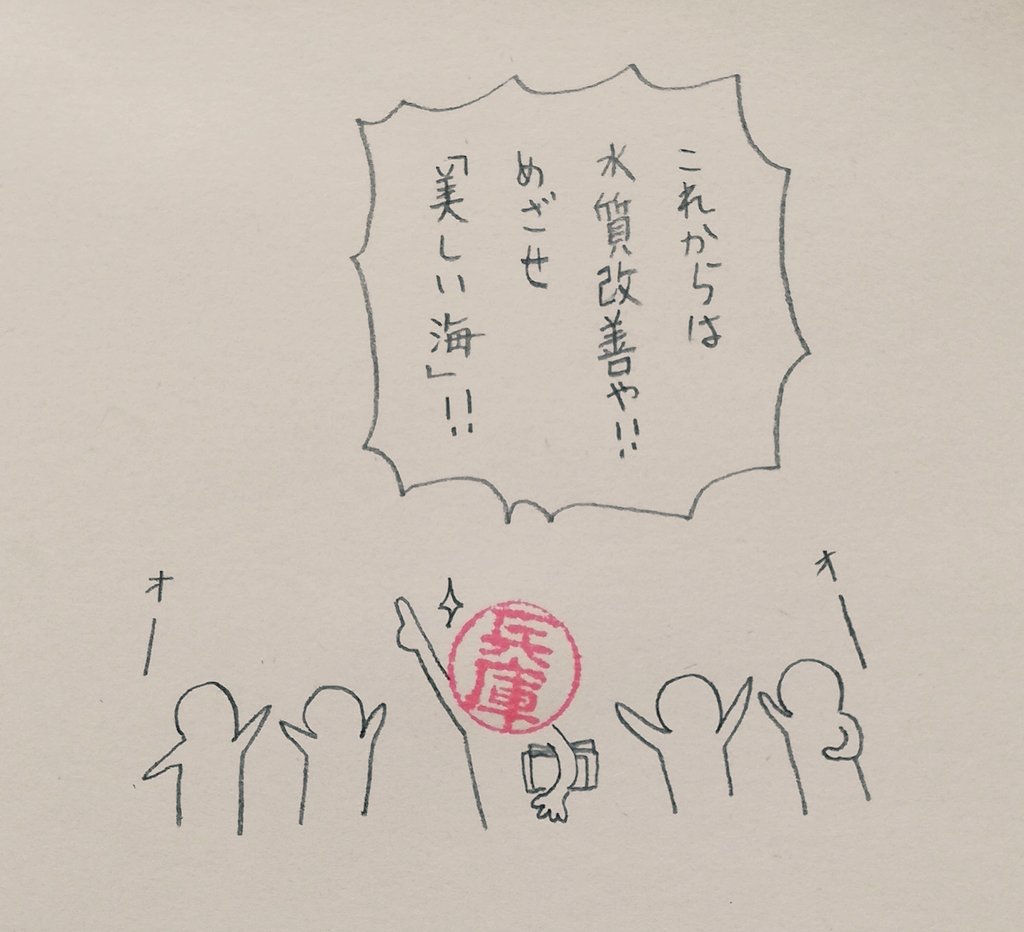 これからは
水質改善や!!
めざせ
「美しい海」!!
オー
オー
兵庫